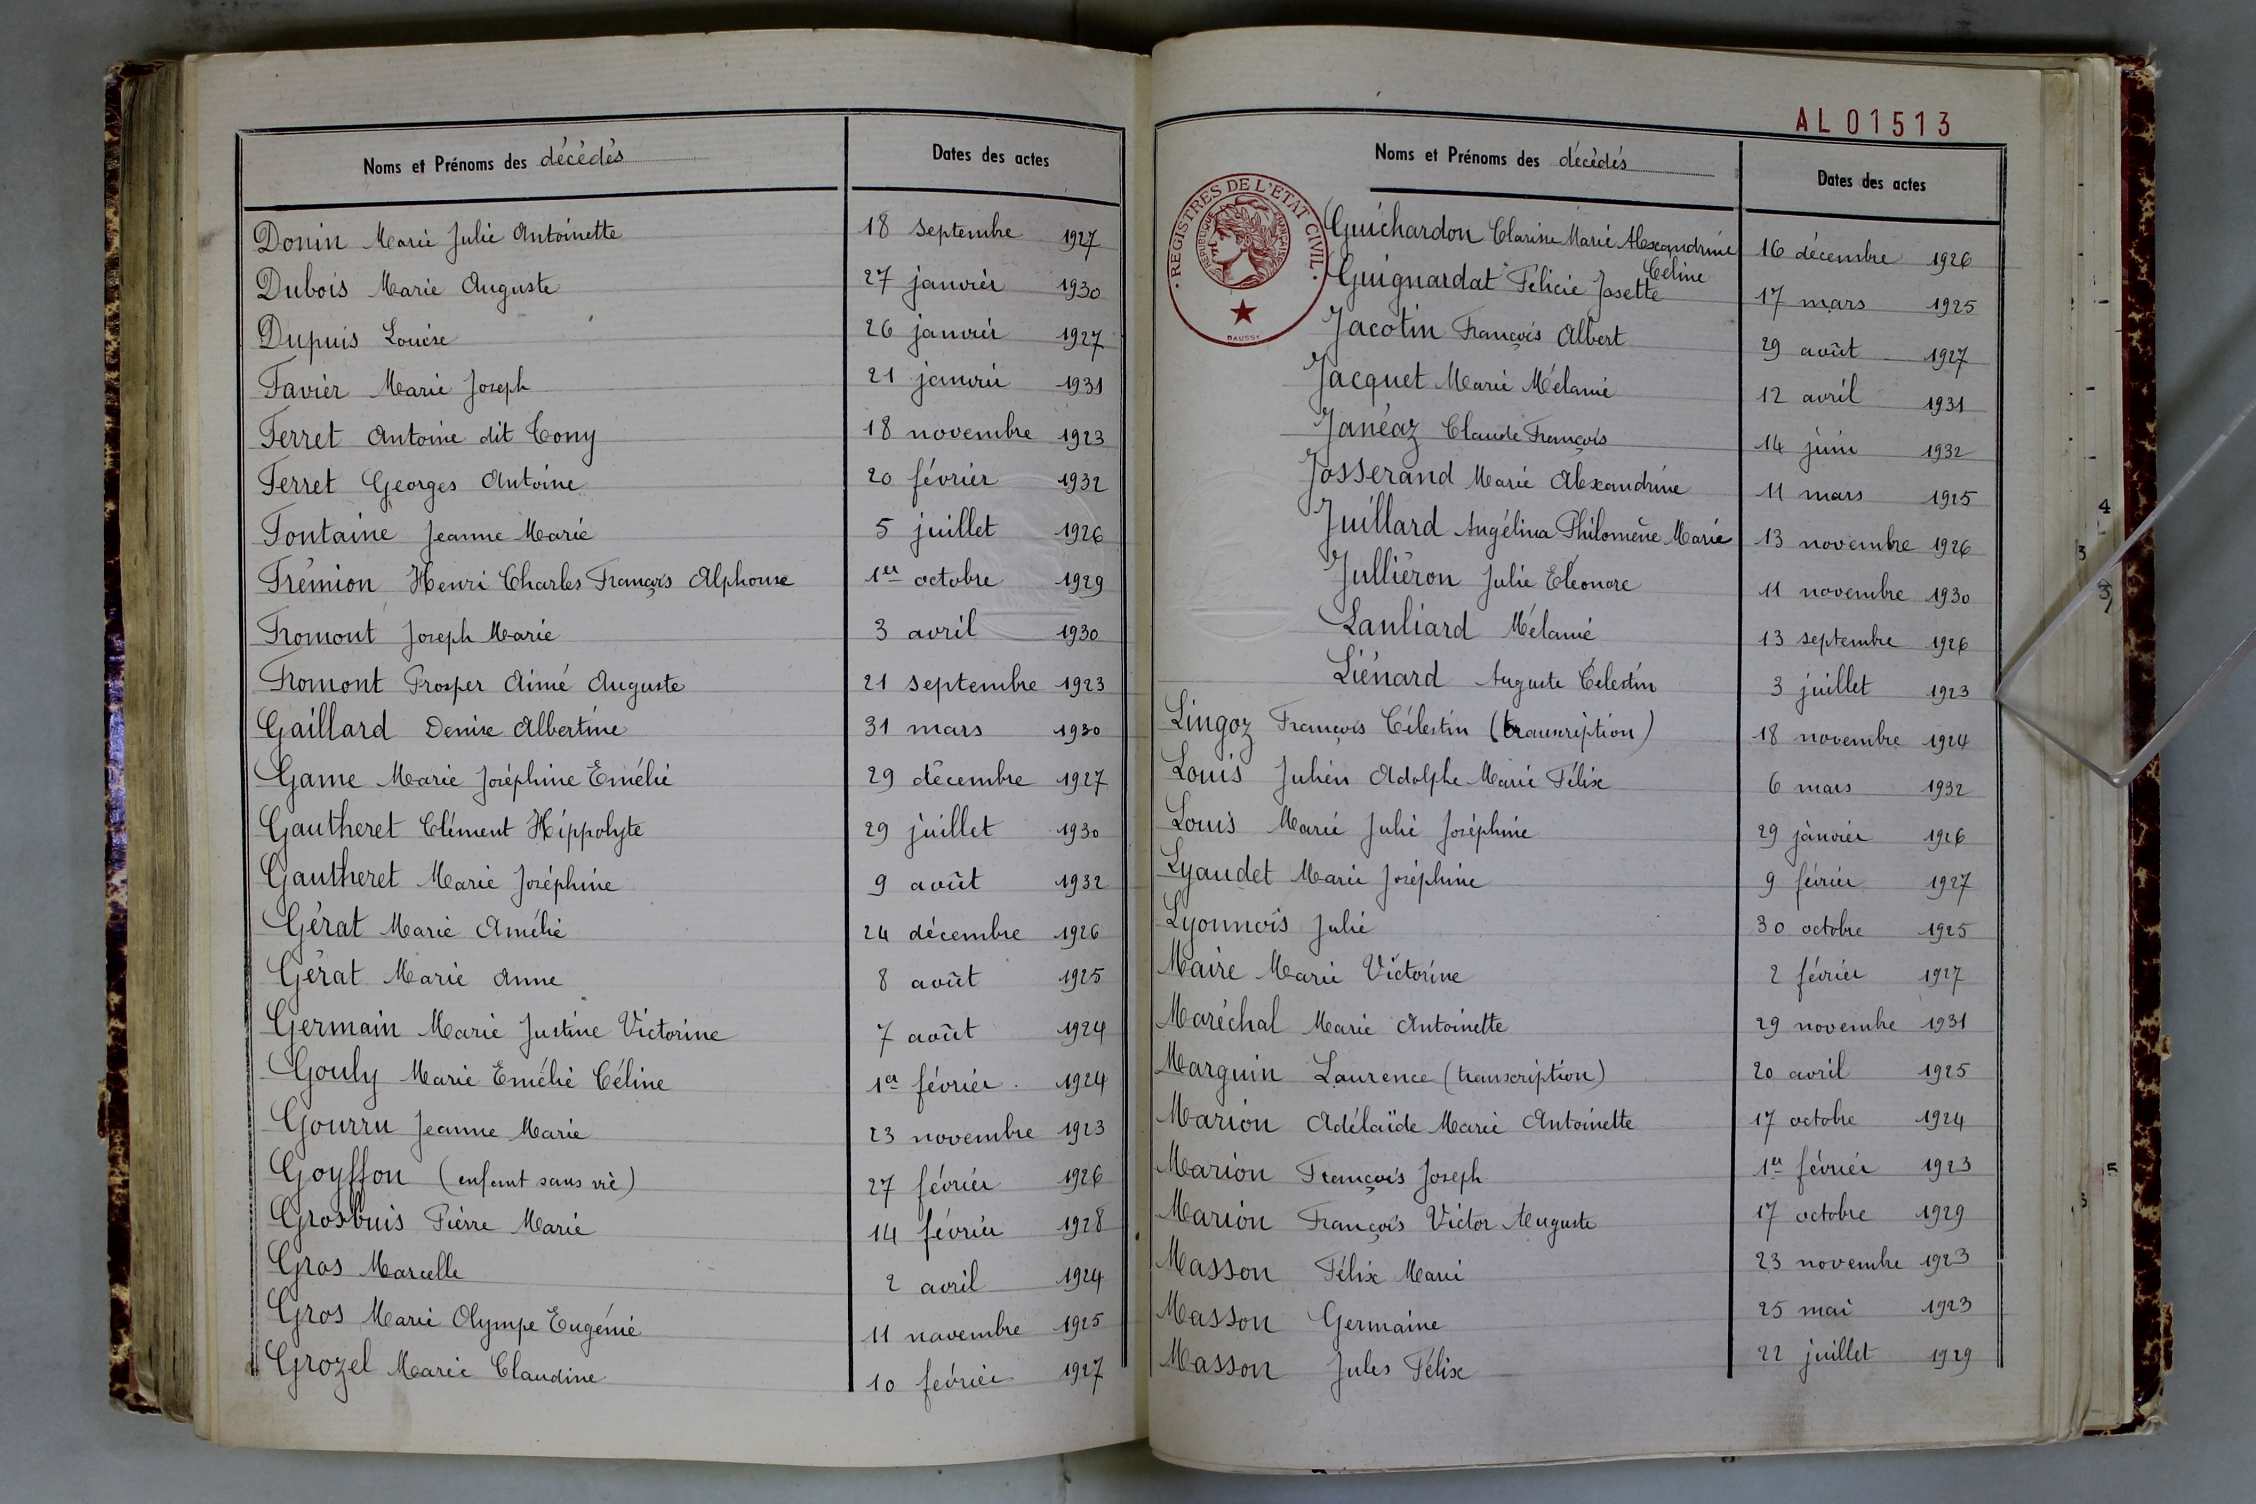 Noms et Prénoms des décédés Dates des actes
Donin Marie Julie Antoinette 18 septembre 1927
Dubois Marie Auguste 27 janvier 1930
Dupuis Louise 26 janvier 1927
Favier Marie Joseph 21 janvier 1931
Ferret Antoine dit Tony 18 novembre 1923
Ferret Georges Antoine 20 février 1932
Fontaine Jeanne Marie 5 juillet 1926
Frémion Henri Charles François Alphonse 1er octobre 1929
Fromont Joseph Marie 3 avril 1930
Fromont Prosper Aimé Auguste 21 septembre 1923
Gaillard Denise Albertine 31 mars 1930
Game Marie Joséphine Emélie 29 décembre 1927
Gautheret Clément Hippolyte 29 juillet 1930
Gautheret Marie Joséphine 9 août 1932
Gérat Marie Amélie 24 décembre 1926
Gérat Marie Anne 8 août 1925
Germain Marie Justine Victorine 7 août 1924
Gouly Marie Emélie Céline 1er février 1924
Gourru Jeanne Marie 23 novembre 1923
Goyffon (enfant sans vie) 27 février 1926
Grosbuis Pierre Marie 14 février 1928
Gros Marcelle 2 avril 1924
Gros Marie Olympe Eugénie 11 novembre 1925
Grozel Marie Claudine 10 février 1927
AL01513
Noms et Prénoms des décédés Dates des actes
REGISTRES DE L'ETAT CIVIL
REPUBLIQUE FRANÇAISE
DAUSSY
Guichardon Clarisse Marie Alexandrine 16 décembre 1926
Céline
Guignardat Félicie Josette 17 mars 1925
Jacotin François Albert 29 août 1927
Jacquet Marie Mélanie 12 avril 1931
Janéaz Claude François 14 juin 1932
Josserand Marie Alexandrine 11 mars 1925
Juillard Angélina Philomène Marie 13 novembre 1926
Julliéron Julie Eléonore 11 novembre 1930
Lanliard Mélanie 13 septembre 1926
Liénard Auguste Célestin 3 juillet 1923
Lingoz François Célestin (transcription) 18 novembre 1924
Louis Julien Adolphe Marie Félix 6 mars 1932
Louis Marie Julie Joséphine 29 janvier 1926
Lyaudet Marie Joséphine 9 février 1927
Lyonnois Julie 30 octobre 1925
Maire Marie Victorine 2 février 1927
Maréchal Marie Antoinette 29 novembre 1931
Marguin Laurence (transcription) 20 avril 1925
Marion Adélaïde Marie Antoinette 17 octobre 1924
Marion François Joseph 1er février 1923
Marion François Victor Auguste 17 octobre 1929
Masson Félix Marie 23 novembre 1923
Masson Germaine 25 mai 1923
Masson Jules Félix 22 juillet 1929